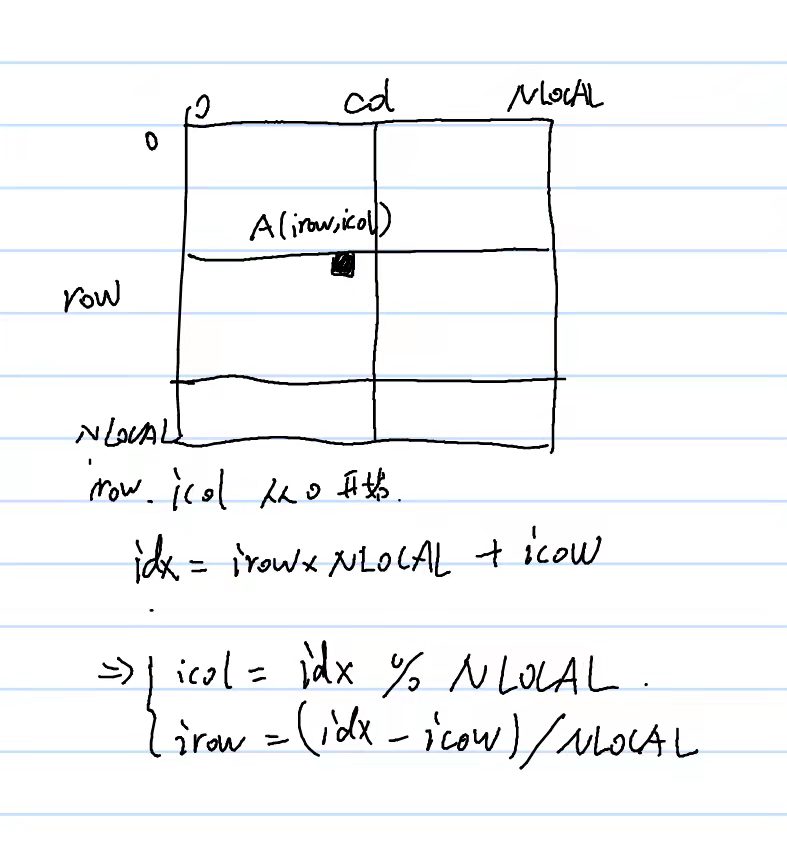 0 col NLOCAL
0
A(irow,icol)
row
NLOCAL
irow. icol 从0开始.
idx = irow x NLOCAL + icow
⇒ { icol = idx % NLOCAL.
irow = (idx - icow)/NLOCAL